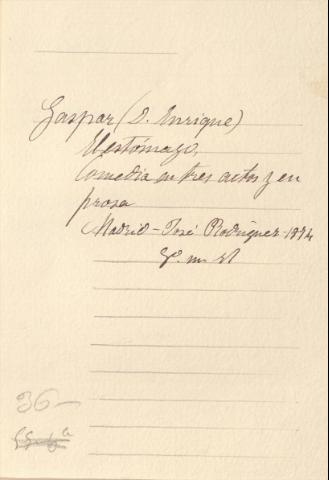 Gaspar (D. Enrique)
El estómago,
Comedia en tres actos y en
prosa
Madrid = José Rodríguez - 1874
36—